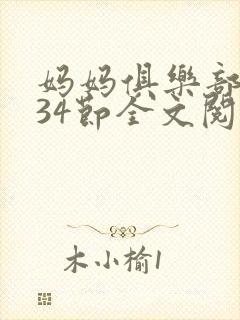 妈妈俱樂部
34節全文閱
木小榆1